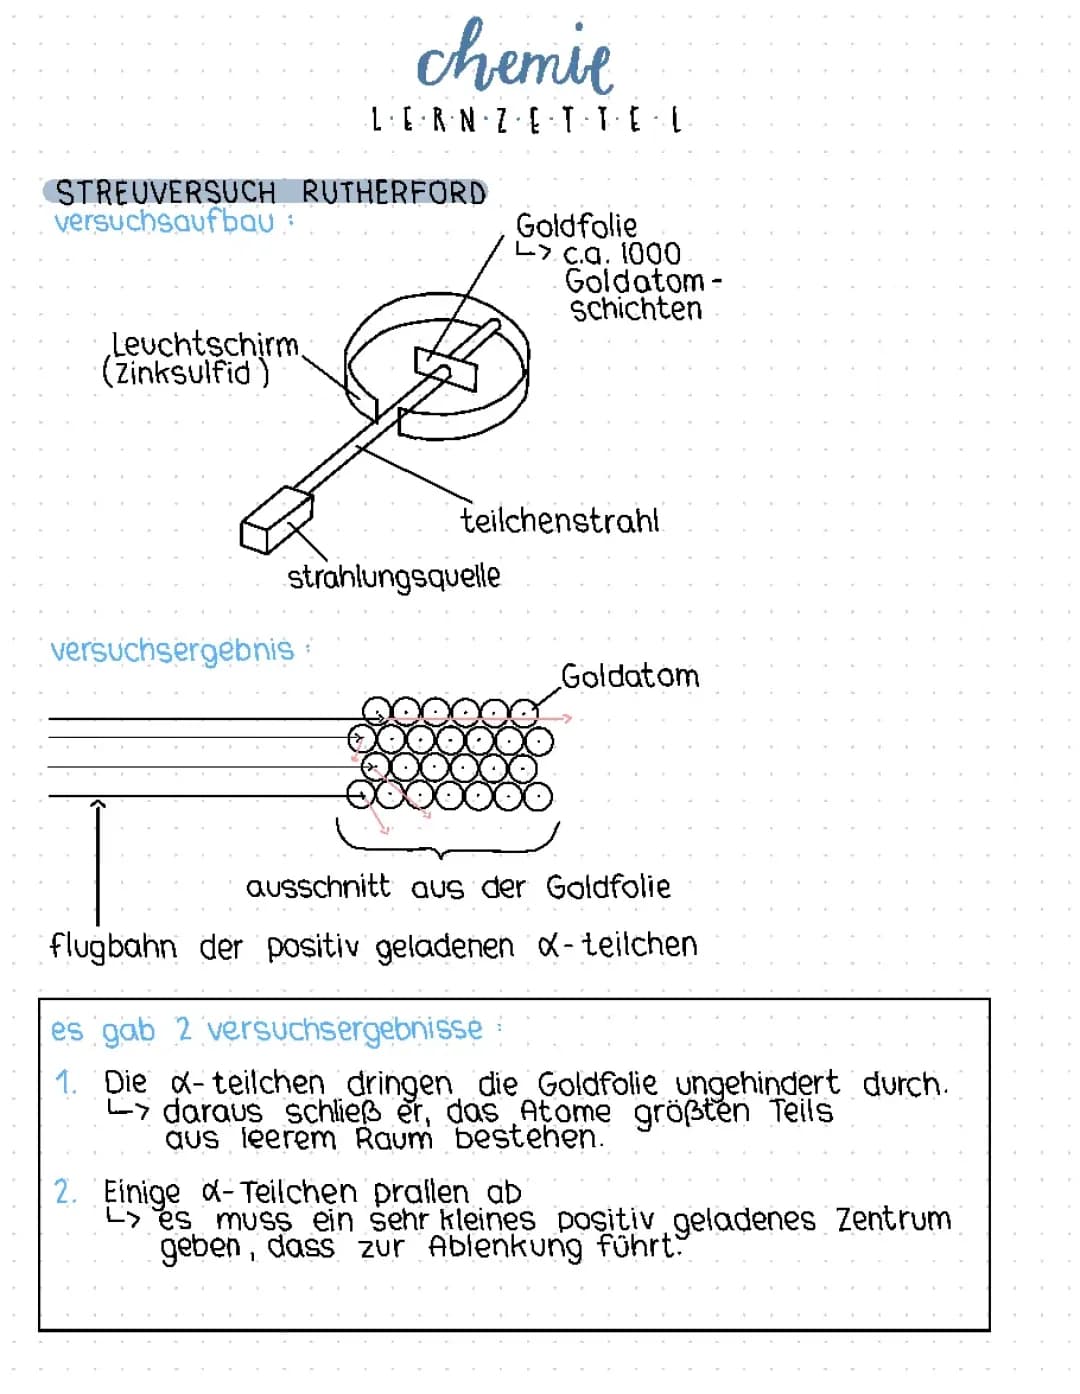 chemie
L·E·R·N·Z·E·T·T·E·L
STREUVERSUCH RUTHERFORD
versuchsaufbau :
Goldfolie
↳ c.a. 1000
Goldatom-
schichten
Leuchtschirm
(Zinksulfid)
teilchenstrahl
strahlungsquelle
versuchsergebnis :
Goldatom
ausschnitt aus der Goldfolie
flugbahn der positiv geladenen α-teilchen
es gab 2 versuchsergebnisse :
1. Die α-teilchen dringen die Goldfolie ungehindert durch.
↳ daraus schließ er, das Atome größten Teils
aus leerem Raum bestehen.
2. Einige α-Teilchen prallen ab
↳ es muss ein sehr kleines positiv geladenes Zentrum
geben, dass zur Ablenkung führt.